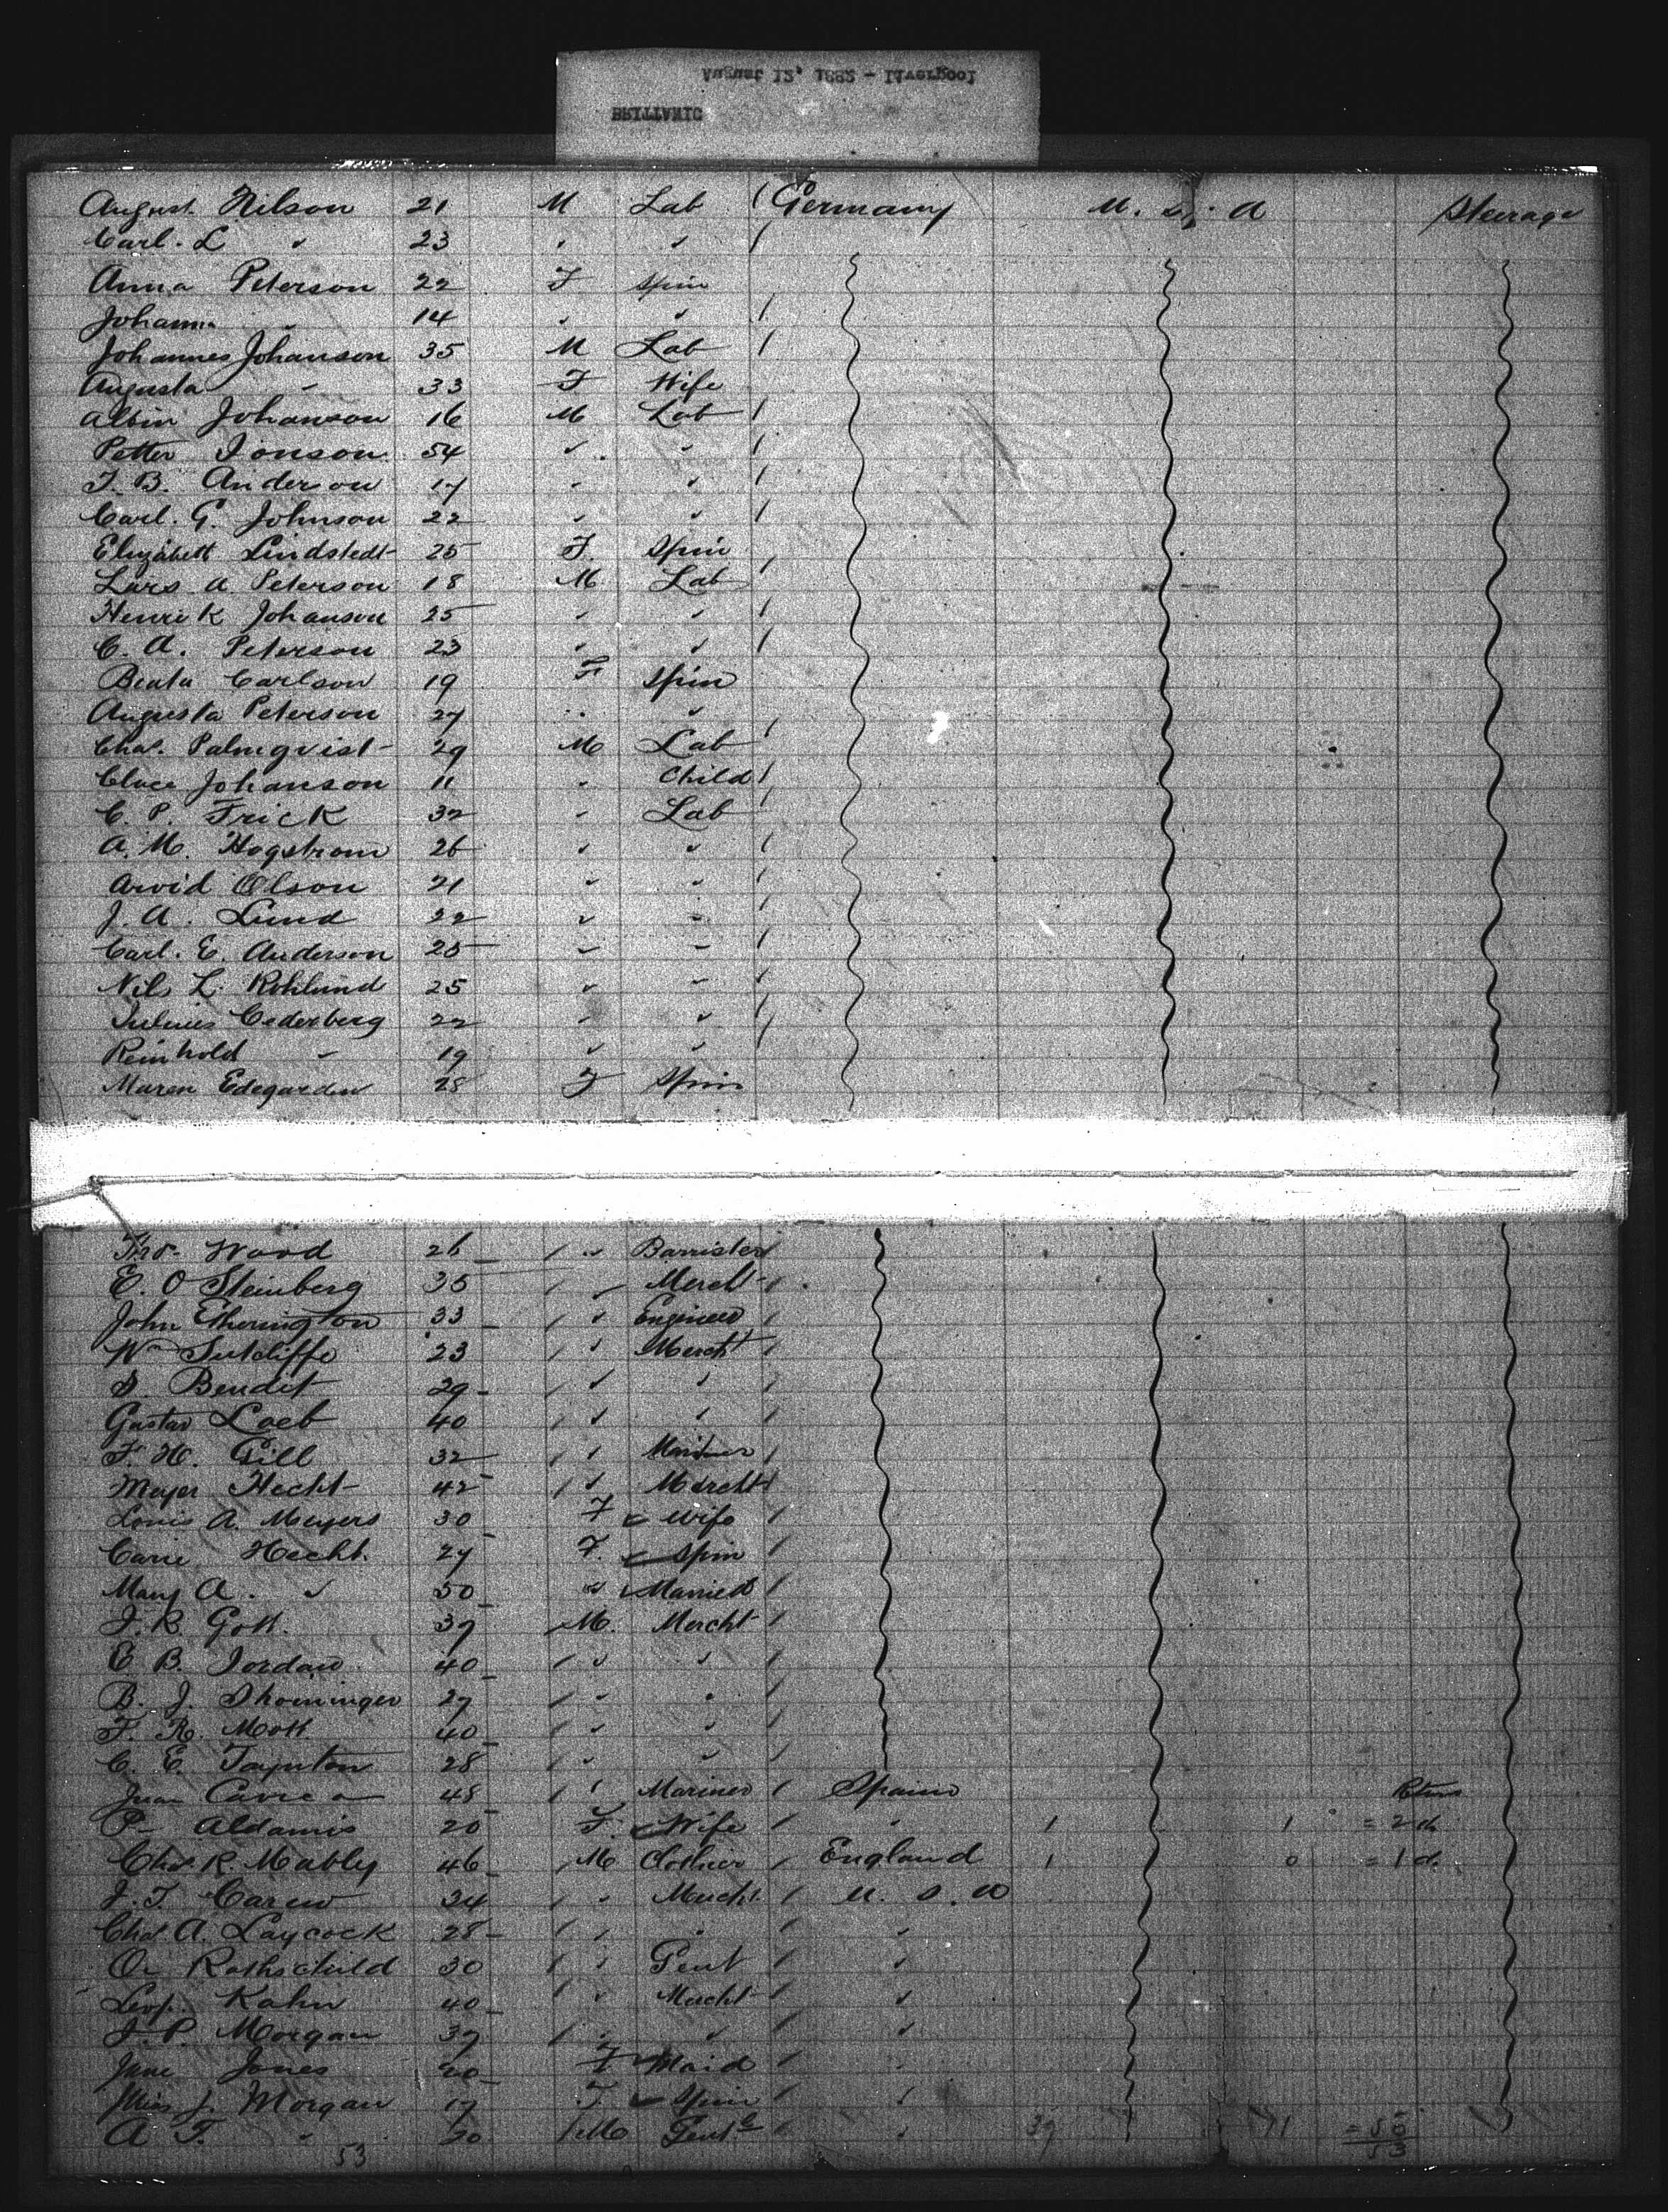 August 12, 1882 - Liverpool
BRITTANIC
August. Nilson 21 M Lab Germany U. S. A Steerage
Carl. L " 23 " "
Anna Peterson 22 F Spin
Johanna " 14 " "
Johannes Johanson 35 M Lab
Augusta " 33 F Wife
Albin Johanson 16 M Lab
Petter Jonson 54 " "
J. B. Anderson 17 " "
Carl. G. Johnson 22 " "
Elizabett Lindstedt 25 F. Spin
Lars A. Peterson 18 M Lab
Henrik Johanson 25 " "
C. A. Peterson 23 " "
Beata Carlson 19 F Spin
Augusta Peterson 27 " "
Chas. Palmqvist 29 M Lab
Johanson 11 " Child
C. P. Frick 32 " Lab
A. M. Hogstrom 26 " "
Arvid Olson 21 " "
J. A. Lund 22 " "
Carl. E. Anderson 25 " "
Nils L. Rohlund 25 " "
Julius Cederberg 22 " "
Reinhold " 19 " "
Maren Edegarden 28 F Spin
Wood 26 " Barrister
E. O Steinberg 35 " Mercht
John Etherington 33 " Engineer
Wm Sutcliffe 23 " Mercht
S. Bendit 29 " "
Gustav Loeb 40 " "
F. H. Gill 32 " Mariner
Meyer Hecht 42 " Mercht
Louis A. Meyers 30 F Wife
Carie Hecht. 27 F. Spin
Mary A. " 50 " Married
J. R. Gott. 37 M. Mercht
E B. Jordan 40 " "
B. J. Shoninger 27 " "
F. R. Mott. 40 " "
C. E. Taynton 28 " "
Juan 48 " Mariner Spain
P Aldamis 20 F. Wife " 1 1 = 2 d
Chas. R. Mabley 46 M Clothier England 1 0 = 1 d.
J. T. Carew 34 " Mercht. U. S. A
Chas A. Laycock 28 " " "
Rothschild 30 " Gent "
Leop. Kahn 40 " Mercht "
J. P. Morgan 37 " " "
Jane Jones 20 F Maid "
Miss J. Morgan 17 F. Spin "
A T. " 20 M Gent "
53 39 11 = 50
53